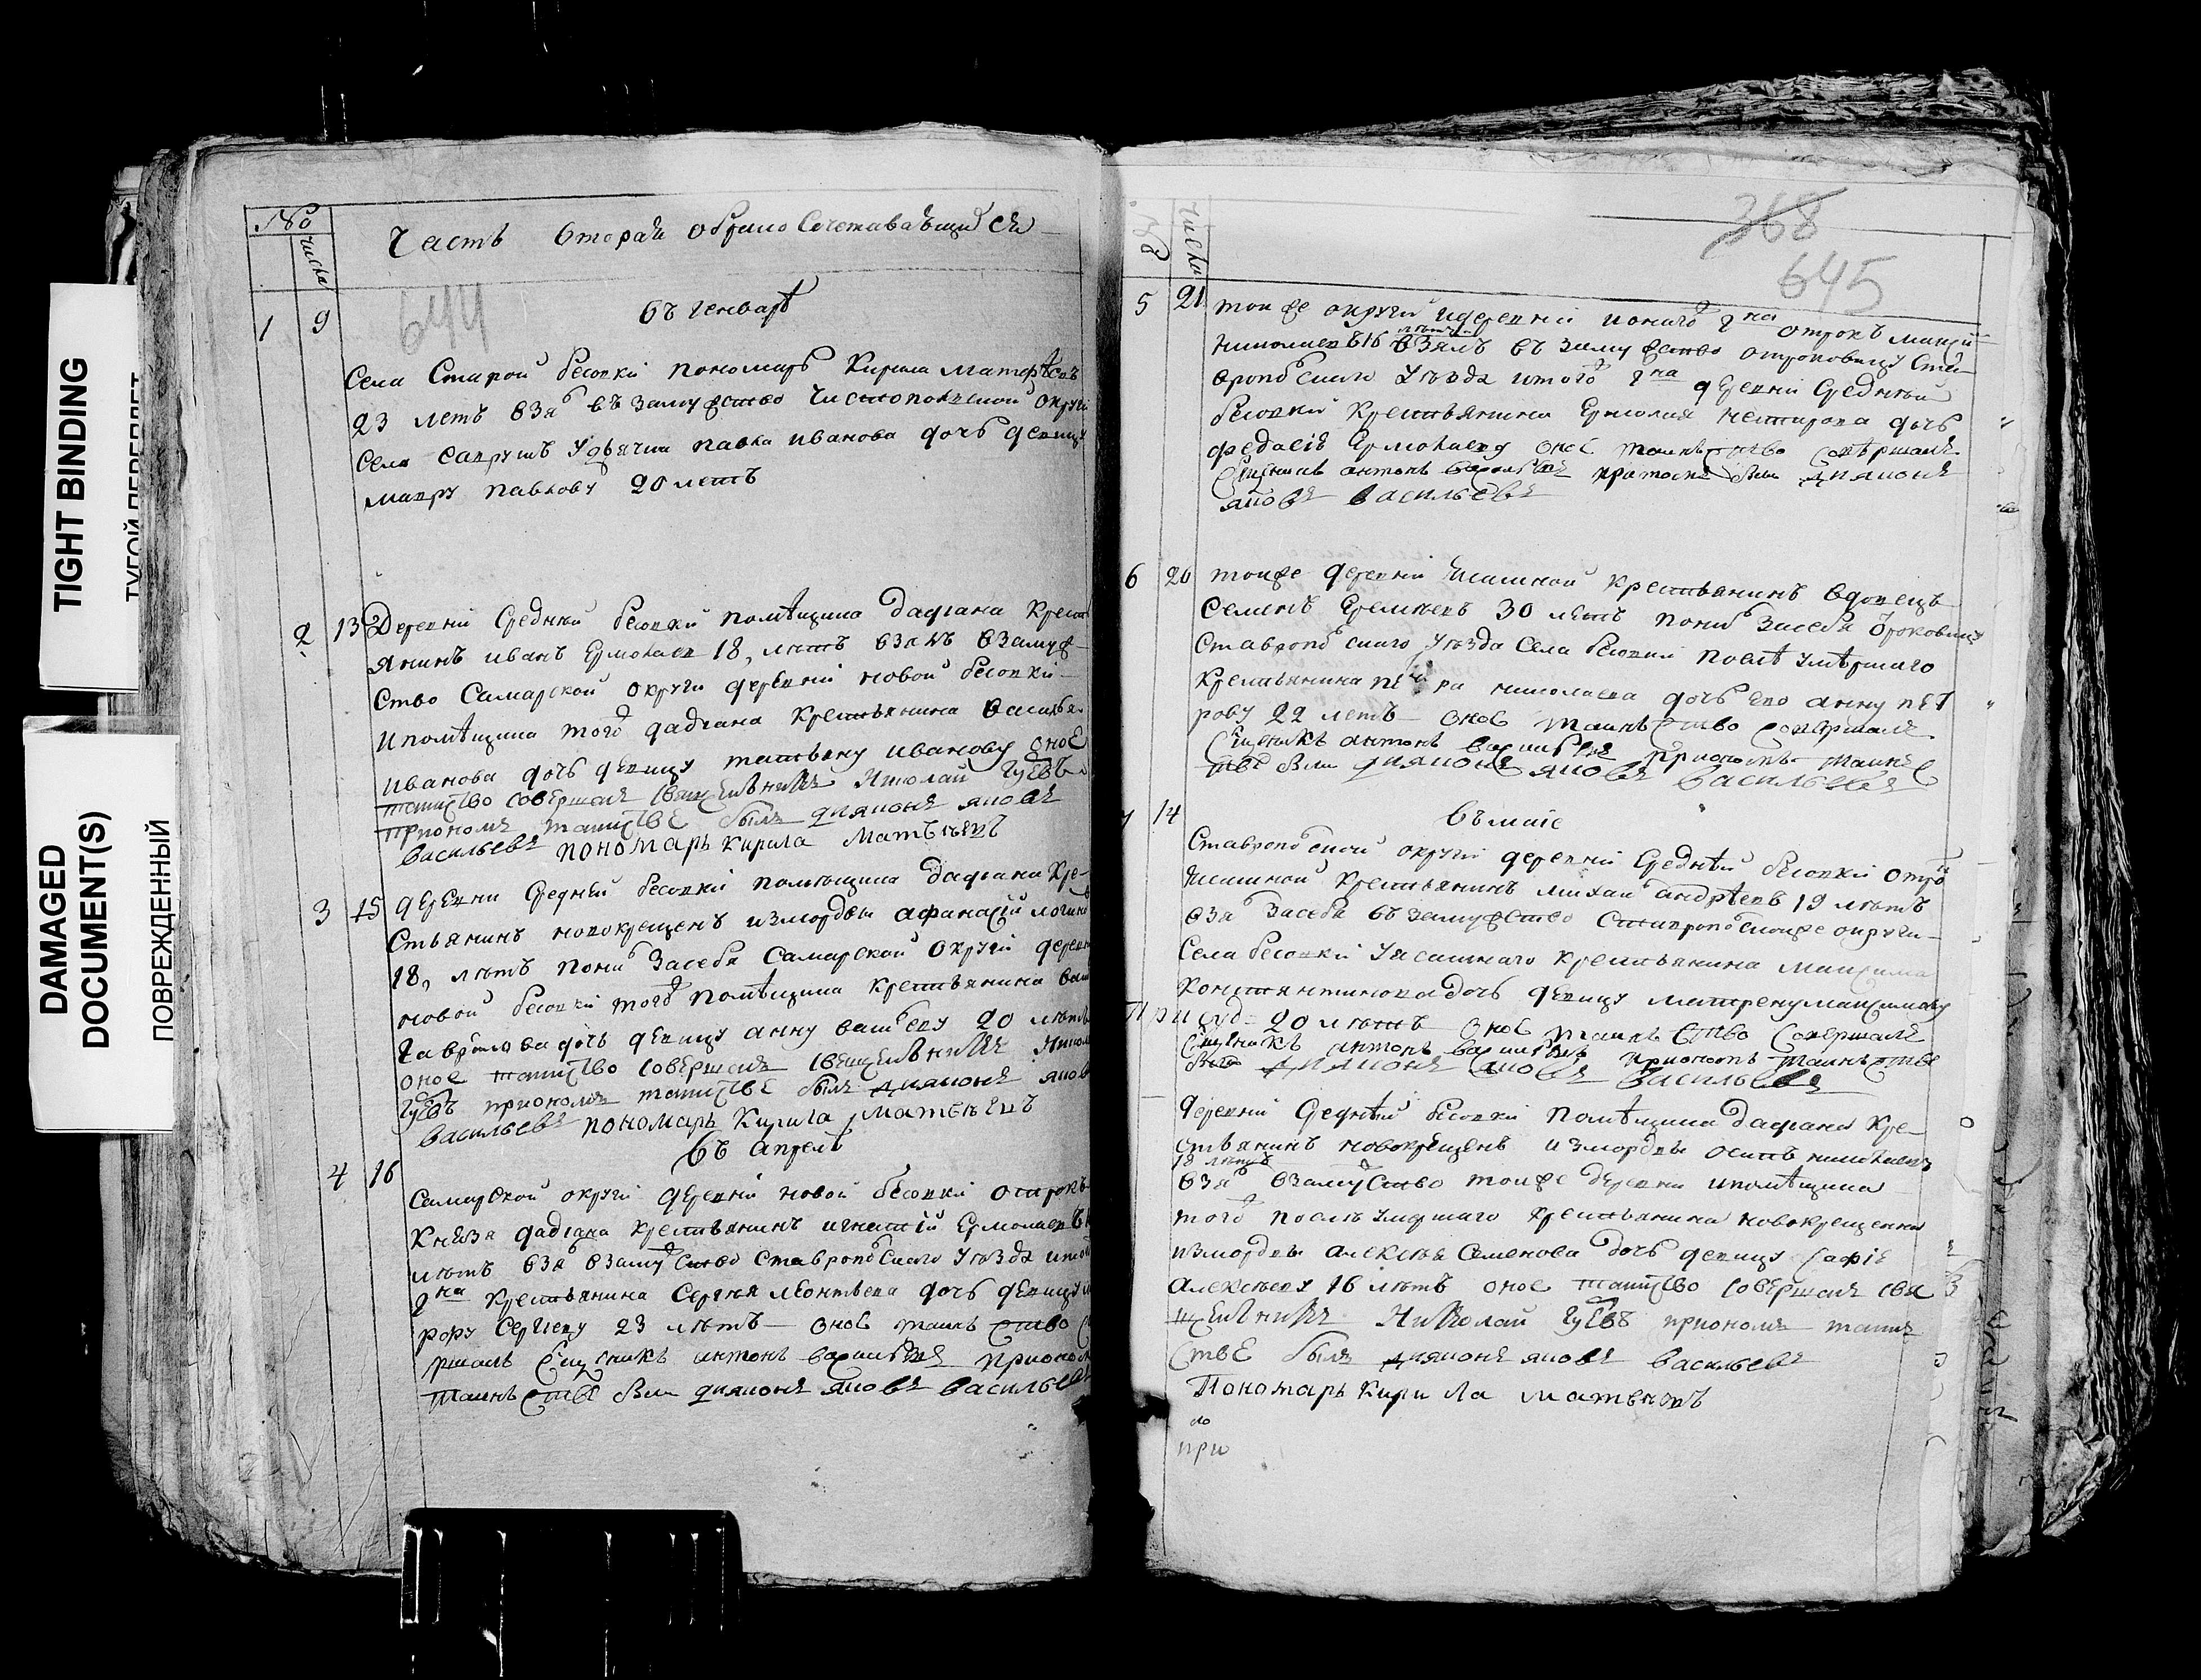 TIGHT BINDING
ТУГОЙ ПЕРЕПЛЕТ
DAMAGED
DOCUMENT(S)
ПОВРЕЖДЕННЫЙ
№
числа
Часть вторая о браком сочетавъшихся
644
въ генварѣ
1 9
Села Старой бесовки пономарь Кирила Матфѣевъ
23 летъ взя въ замужство Чистопольской округи
Села Сапрушъ Удьячка павла иванова дочь девицу
мавру павлову 20 летъ
2 13 Деревни Средней бесовки помѣщика дадиана крестъ
янинъ иванъ Ермолаев 18, лѣтъ взялъ взамуж
ство Самарской округи деревни новой бесовки
и помѣщика того дадиана крестьянина василья
иванова дочь девицу татьяну иванову оное
таинство совершалъ священникъ Николай Гуевъ
при ономъ таинстве былъ диаконъ яковъ
васильевъ пономарь Кирила Матвѣевъ
3 15 деревни Средней бесовки помѣщика дадиана кре
стьянинъ новокрещенъ измордвы афанасий логино
18, лѣтъ понял засебя Самарской округи деревн
новой бесовки того помѣщика крестьянина васи
гаврилова дочь девицу анну васильеву 20 лѣтъ
оное таинство совершалъ священникъ Никол
Гуевъ при ономъ таинстве былъ диаконъ яков
васильевъ пономарь Кирила Матвѣевъ
въ апреле
4 16
Самарской округи деревни новой бесовки отрокъ
Князя дадиана крестьянинъ игнатий Ермолаевъ
лѣтъ взя взамужство Ставропольскаго уѣзда итого
гна крестьянина Сергея леонтьева дочь девицу
Сергееву 23 лѣтъ оное таинство со
ршалъ Священикъ антонъ васильевъ приономъ
таинстве был диаконъ яковъ васильев
№
числа
368
645
5 21 тоиже округи идеревни ионаго гна отрокъ
николаевъ 16 лѣтъ взялъ въ замужство отроковицу Ста
вропольскаго уѣзда итого гна деревни Средней
бесовки крестьянина Ермолая дочь
Ермолаеву оное таинство совѣршалъ
Священикъ антонъ васильевъ притомъ был диаконъ
яковъ васильевъ
6 26 тоиже деревни Ясашной крестьянинъ вдовецъ
Семенъ Еремѣевъ 30 лѣтъ понял засебя отроковицу
Ставропольскаго уѣзда Села бесовки послѣ умѣршаго
крестьянина петра николаева дочь его анну пет
рову 22 летъ оное таинство совершалъ
Священикъ антонъ васильевъ приономъ таинс
тве был диаконъ яковъ васильевъ
въ маие
14
Ставропольской округи деревни Средней бесовки отрок
Ясашной крестьянинъ михаил андрѣевъ 19 лѣтъ
взя засебя въ замужство Ставропольскоиже округи
Села бесовки Уясашнаго крестьянина максима
константинова дочь девицу матрену максимову
20 лѣтъ оное таинство совершалъ
Священикъ антонъ васильевъ приономъ таинстве
был диаконъ яковъ васильевъ
деревни Средней бесовки помѣщика дадиана кре
стьянинъ новокрещенъ измордвы осипъ николаевъ
18 лѣтъ
взя взамужство тоиже деревни ипомѣщика
того послѣ умершаго крестьянина новокрещенна
измордвы алексѣя Семенова дочь девицу
алексѣеву 16 лѣтъ оное таинство совершалъ свя
щенникъ Николай Гуевъ приономъ таин
стве былъ диаконъ яковъ васильевъ
Пономарь Кирила Матвѣевъ
при